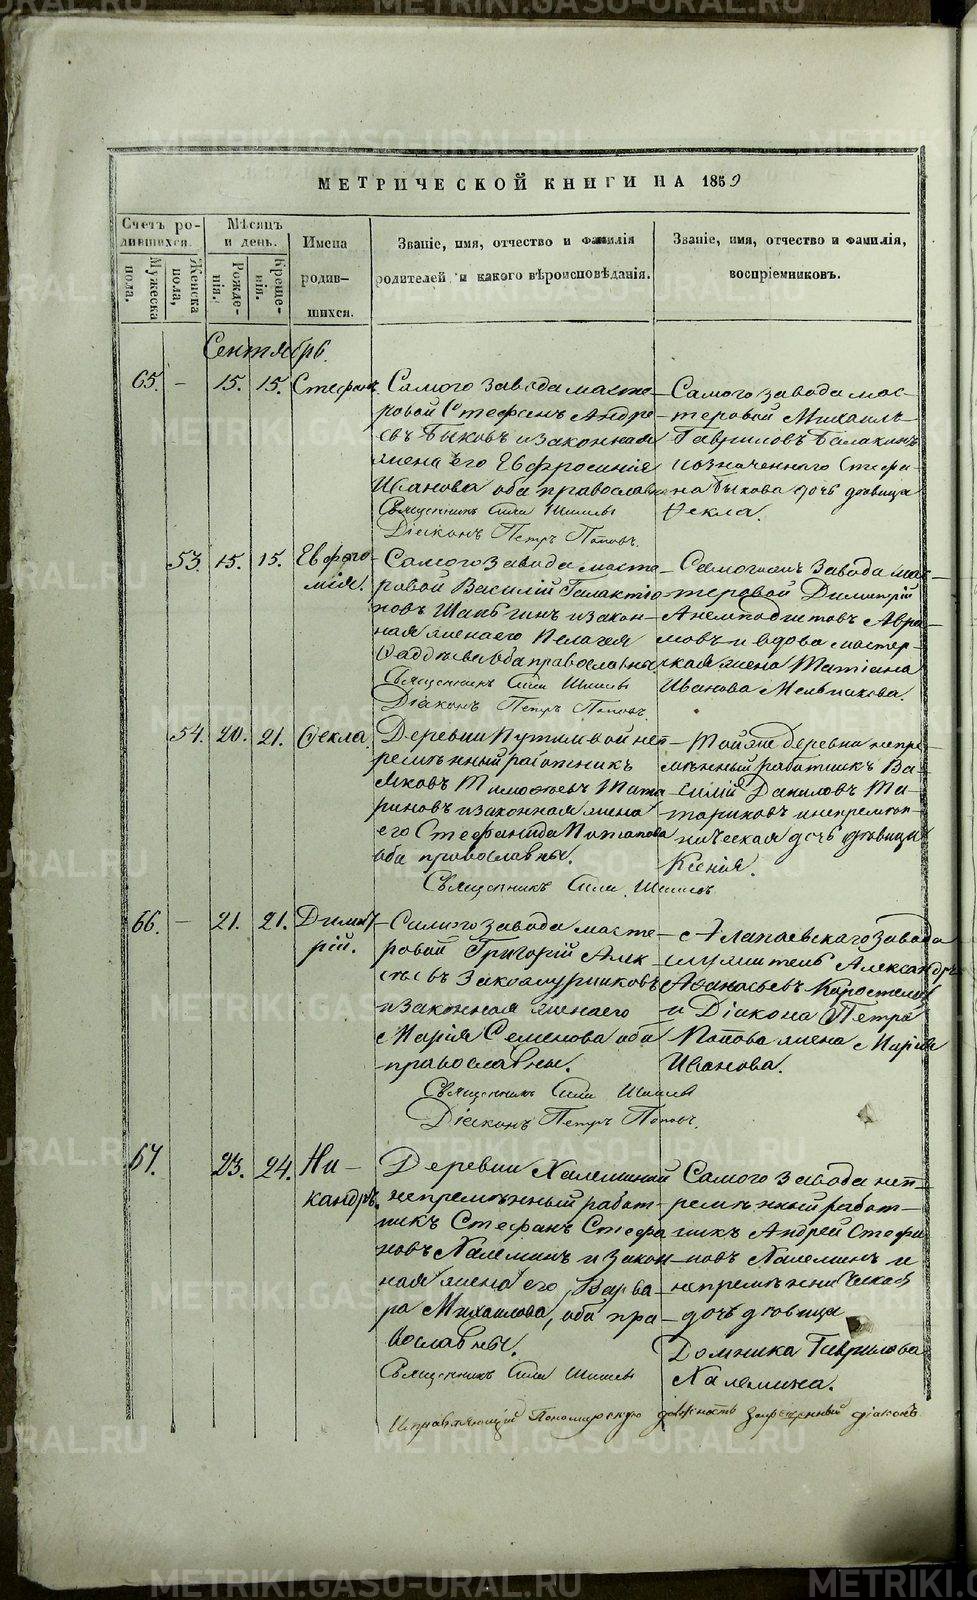 МЕТРИЧЕСКОЙ КНИГИ НА 1859
Счетъ родившихся.
Мѣсяцъ и день.
Имена родившихся.
Званіе, имя, отчество и фамилія родителей и какого вѣроисповѣданія.
Званіе, имя, отчество и фамилія, воспріемниковъ.
Мужеска пола.
Женска пола,
Рожденія.
Крещенія.
Сентябрь.
65. – 15. 15. Стефанъ
Самого завода масте-
ровой Стефанъ Андре-
евъ Быковъ и законная
жена его Евфросинія
Иванова оба православны
Священникъ Сила
Діаконъ Петръ Поповъ.
Самого завода мас-
теровой Михаилъ
Гавриловъ Балакинъ
и означеннаго Стефа-
на Быкова дочь девица
Фекла.
53. 15. 15. Евфи-
мія.
Самого завода масте-
ровой Василій Галактіо-
новъ и закон-
ная жена его Пелагея
Фаддѣева оба православны
Священникъ Сила
Діаконъ Петръ Поповъ.
завода мас-
теровой Димитрій
Анемподистовъ Авра-
мовъ и вдова мастер-
ская жена Татіана
Иванова Мельникова.
54. 20. 21. Фекла.
Деревни Путиловой неп-
ремѣнный работникъ
Яковъ Тимофеевъ Тата-
риновъ и законная жена
его Стефанида Потапова
оба православны.
Священникъ Сила
Той же деревни непре-
мѣнный работникъ Ва-
силій Даниловъ Та-
тариновъ и непремѣн-
ническая дочь девица
Ксенія.
66. – 21. 21. Димит-
рій.
Самого завода масте-
ровой Григорій Алек-
сѣевъ Закожурниковъ
и законная жена его
Марія Семенова оба
православны.
Священникъ Сила
Діаконъ Петръ Поповъ.
Алапаевскаго завода
служитель Александръ
Афанасьевъ Коростелевъ
и Діакона Петра
Попова жена Марія
Иванова.
67. 23. 24. Ни-
кандръ.
Деревни Халеминой
непремѣнный работ-
никъ Стефанъ Стефа-
новъ Халеминъ и закон-
ная жена его Варва-
ра Михаилова, оба пра-
вославны.
Священникъ Сила
Самого завода неп-
ремѣнный работ-
никъ Андрей Стефа-
новъ Халеминъ и
непремѣнническая
дочь девица
Домника Гаврилова
Халемина.
Исправляющій Пономарскую должность діаконъ
METRIKI.GASO-URAL.RU